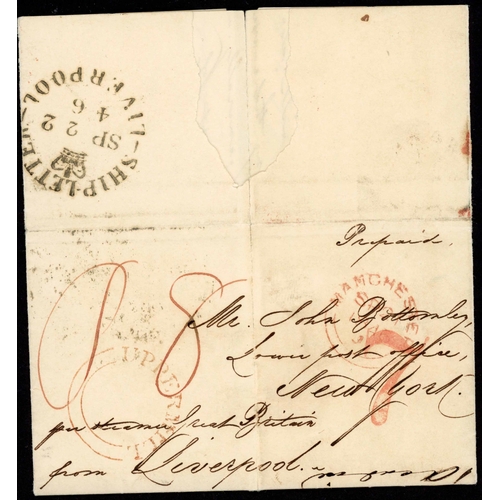 SHIP-LETTER
LIVERPOOL
SP 22
46
Prepaid.
1/8
MANCHESTER
Mr. John Bottomley,
Lower post office,
New York.
7
per steamer Great Britain
from Liverpool.
UPPERMILL